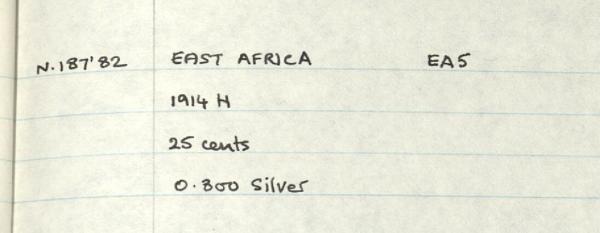 N.187'82 EAST AFRICA EA5
1914 H
25 cents
0.800 Silver